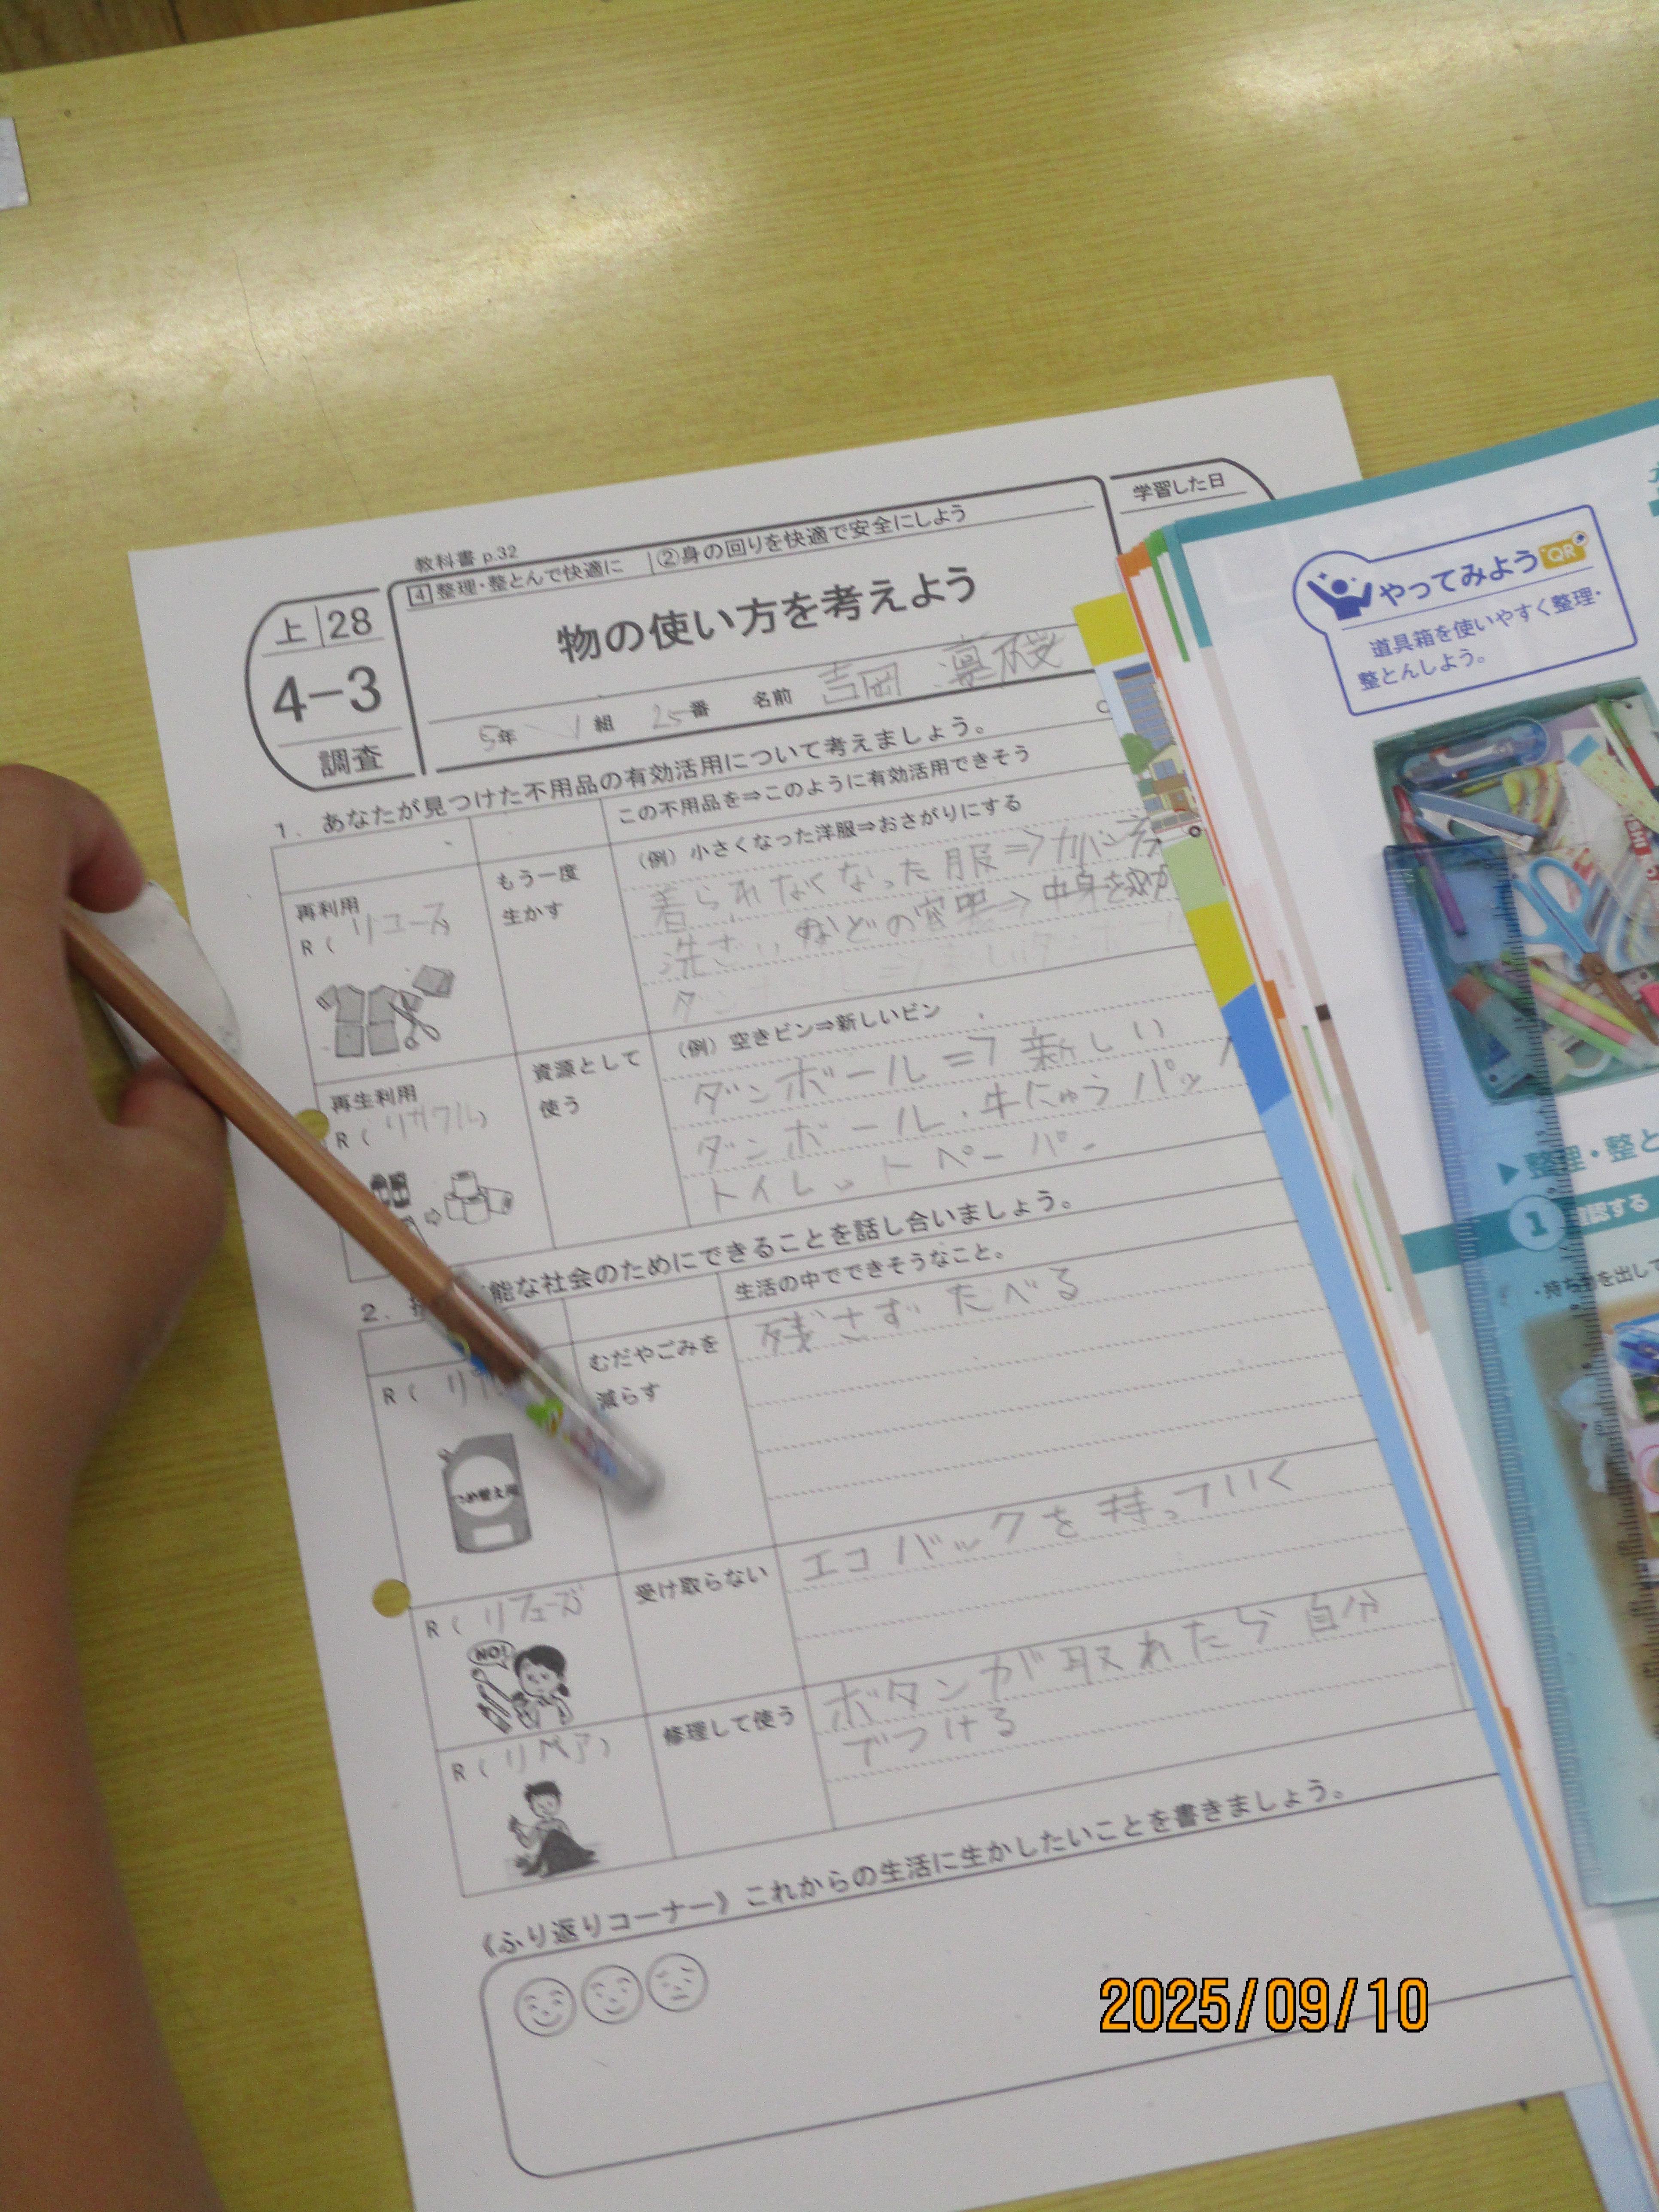 教科書 p.32
4 整理・整とんで快適に ②身の回りを快適で安全にしよう
学習した日
上 28
4-3
調査
物の使い方を考えよう
5年 1組 25番 名前 吉岡
1. あなたが見つけた不用品の有効活用について考えましょう。
この不用品を⇒このように有効活用できそう
再利用
R( リユース
もう一度
生かす
(例)小さくなった洋服⇒おさがりにする
着られなくなった服⇒カバン
洗ざい などの容器⇒中身を
再生利用
R( リサイクル)
資源として
使う
(例)空きビン⇒新しいビン
ダンボール⇒新しい
ダンボール.牛にゅうパッ
トイレットペーパー
2. 能な社会のためにできることを話し合いましょう。
生活の中でできそうなこと。
R( リ
つめ替え用
むだやごみを
減らす
残さず たべる
R( リフューズ
NO!
受け取らない
エコバックを持っていく
R( リペア)
修理して使う
ボタンが取れたら自分
でつける
《ふり返りコーナー》これからの生活に生かしたいことを書きましょう。
やってみよう QR
道具箱を使いやすく整理・
整とんしよう。
▶整理・整と
1 確認する
・持ち物を出して
2025/09/10